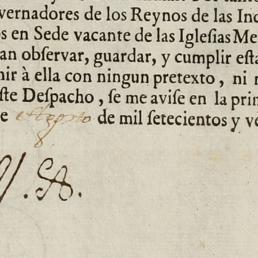 vernadores de los Reynos de las Ind
os en Sede vacante de las Iglesias Me
an observar, guardar, y cumplir esta
nir à ella con ningun pretexto, ni
ste Despacho, se me avise en la prin
e Agosto de mil setecientos y ve